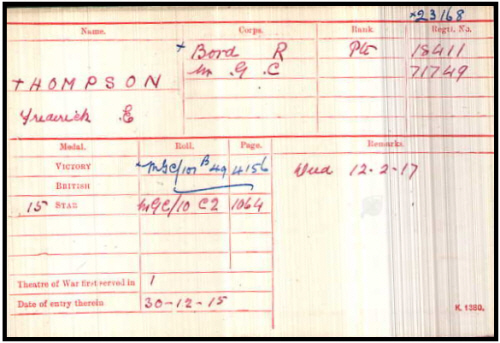 ×23168
Name. Corps. Rank. Regtl. No.
× Bord R Pte 18411
M .G .C 71749
THOMPSON
Frederick E
Medal. Roll. Page. Remarks.
VICTORY MGC/101 B 49 4156 Died 12-2-17
BRITISH
15 STAR MGC/10 C2 1064
Theatre of War first served in 1
Date of entry therein 30-12-15
K. 1380.